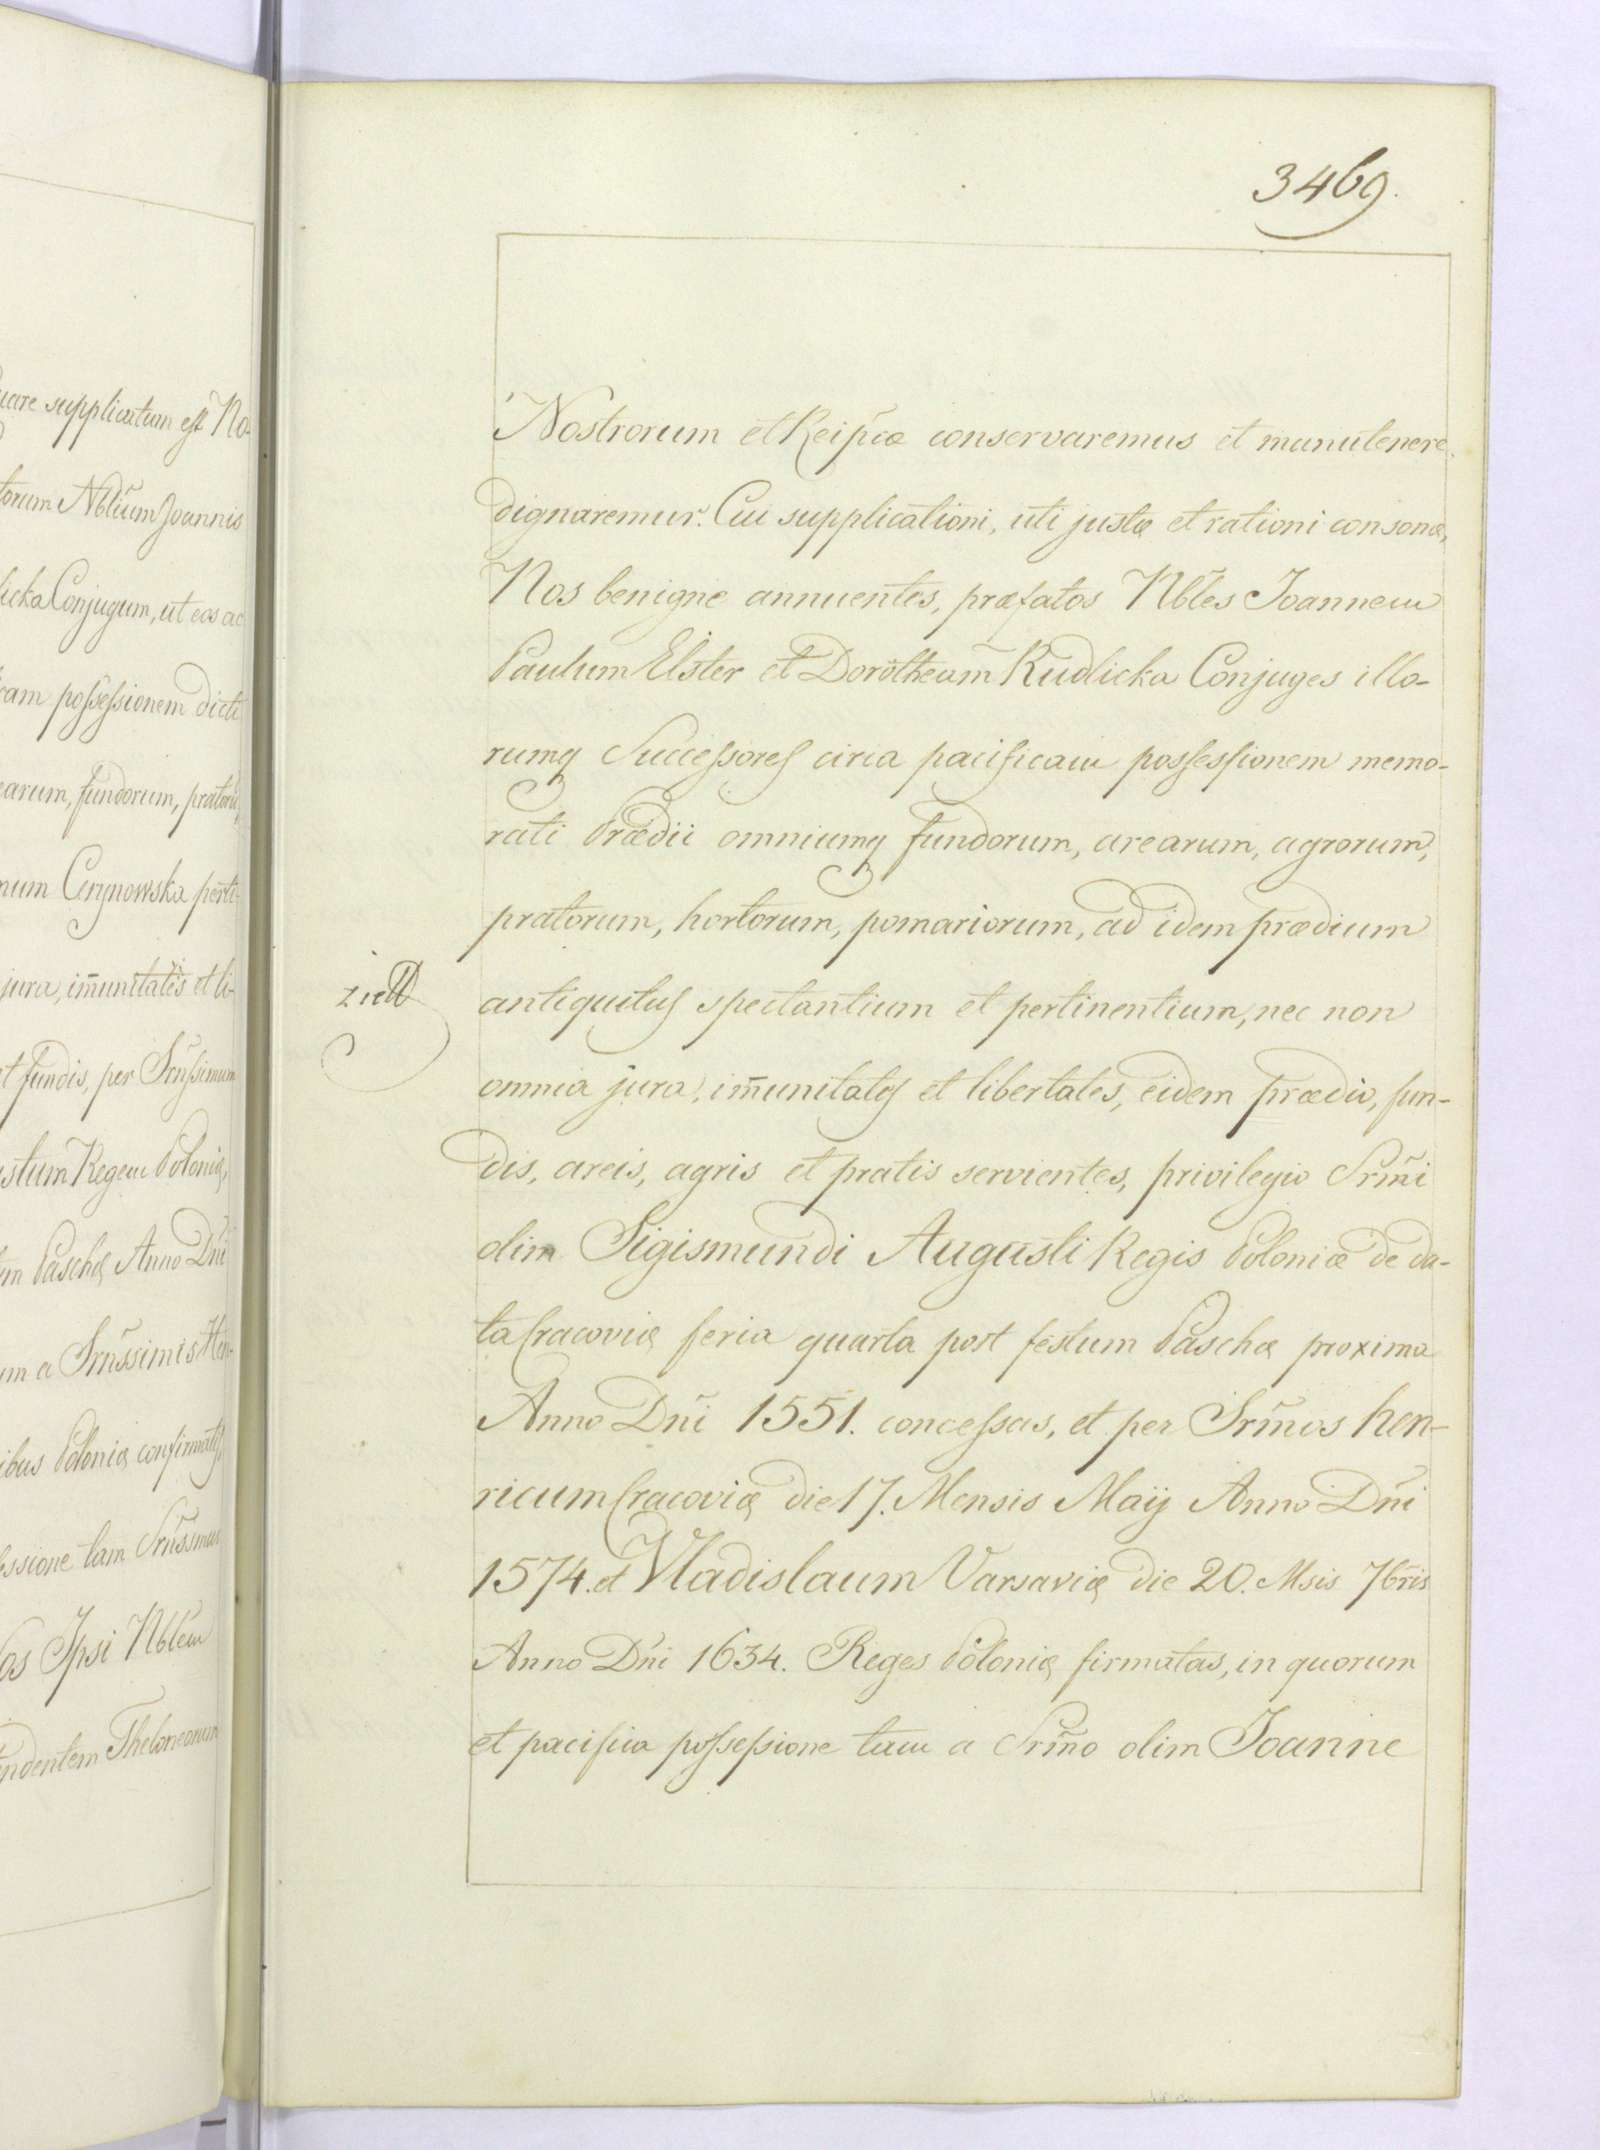 uare supplicatum est No-
torum Nblium Joannis
licka Conjugum, ut eos ac
cam possessionem dicti
earum, fundorum, pratorū,
num Cerynowska perti-
jura, im̄unitates et li-
et fundis, per Srn̄ssimum
ustum Regem Poloniæ,
um Paschæ Anno Dn̄i
um a Srn̄ssimis Hen-
ibus Poloniæ confirmatis,
essione tam Srn̄ssmus
Nos Ipsi Nblem
endentem Theloneorum
3469.
Nostrorum et Reipc̄æ conservaremus et manutenere
dignaremur. Cui supplicationi, uti justæ et rationi consonæ,
Nos benigne annuentes, præfatos Nbl̄es Joannem
Paulum Elster et Dorotheam Kudlicka Conjuges illo-
rumq Successores circa pacificam possessionem memo-
rati Prædii omniumq fundorum, arearum, agrorum,
pratorum, hortorum, pomariorum, ad idem prædium
antiquitus spectantium et pertinentium, nec non
omnia jura, im̄unitates et libertates, eidem prædio, fun-
dis, areis, agris et pratis servientes, privilegio Srm̄i
olim Sigismundi Augusti Regis Poloniæ de da-
ta Cracoviæ feria quarta post festum Paschæ proxima
Anno Dn̄i 1551. concessas, et per Srm̄os Hen-
ricum Cracoviæ die 17. Mensis Maij Anno Dn̄i
1574. et Vladislaum Varsaviæ die 20. Msis 7br̄is
Anno Dn̄i 1634. Reges Poloniæ firmatas, in quorum
et pacifica possessione tam a Srm̄o olim Joanne